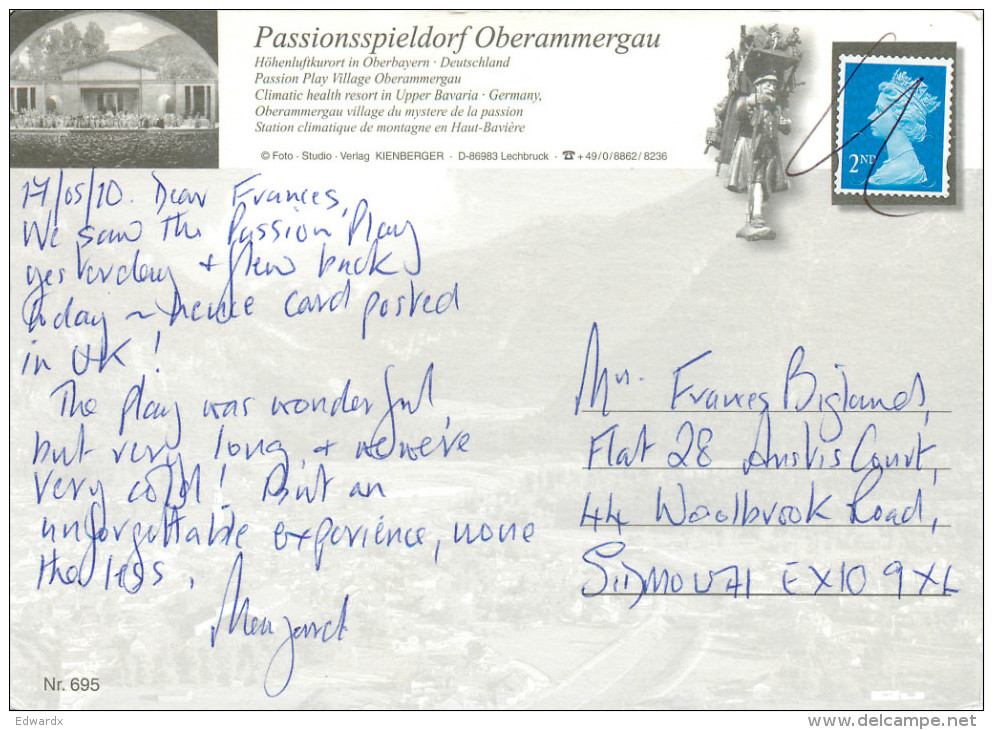 Passionsspieldorf Oberammergau
Höhenluftkurort in Oberbayern · Deutschland
Passion Play Village Oberammergau
Climatic health resort in Upper Bavaria · Germany,
Oberammergau village du mystere de la passion
Station climatique de montagne en Haut-Bavière
© Foto · Studio · Verlag KIENBERGER · D-86983 Lechbruck · ☎ +49/0/8862/8236
2ND
17/05/10. Dear Frances,
We saw the Passion Play
yesterday + flew back
today ~ hence card posted
in UK!
The play was wonderful,
but very long, + we were
very cold! But an
unforgettable experience, none
the less.
Margaret
Mrs. Frances Biglands,
Flat 28 Anstis Court,
44 Woolbrook Road,
SIDMOUTH EX10 9XL
Nr. 695
Edwardx
www.delcampe.net